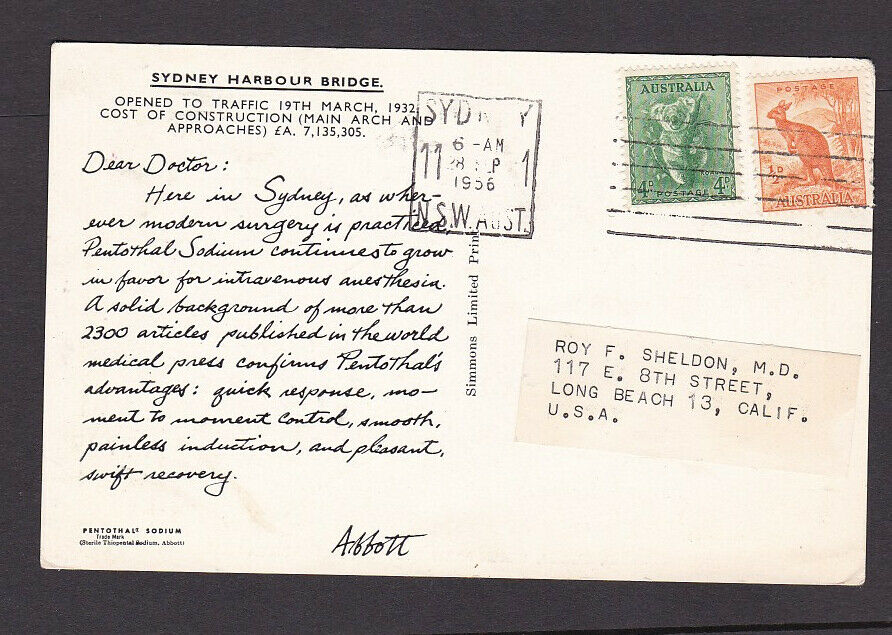 SYDNEY HARBOUR BRIDGE.
OPENED TO TRAFFIC 19TH MARCH, 1932
COST OF CONSTRUCTION (MAIN ARCH AND
APPROACHES) £A. 7,135,305.
Dear Doctor:
Here in Sydney, as wher-
ever modern surgery is practiced,
Pentothal Sodium continues to grow
in favor for intravenous anesthesia.
A solid background of more than
2300 articles published in the world
medical press confirms Pentothal's
advantages: quick response, mo-
ment to moment control, smooth,
painless induction, and pleasant,
swift recovery.
Abbott
PENTOTHAL® SODIUM
Trade Mark
(Sterile Thiopental Sodium, Abbott)
Simmons Limited Print
SYDNEY
6 -AM
11 1
1956
N.S.W. AUST.
AUSTRALIA
KOALA
4D POSTAGE 4D
POSTAGE
½D
AUSTRALIA
ROY F. SHELDON, M.D.
117 E. 8TH STREET,
LONG BEACH 13, CALIF.
U.S.A.